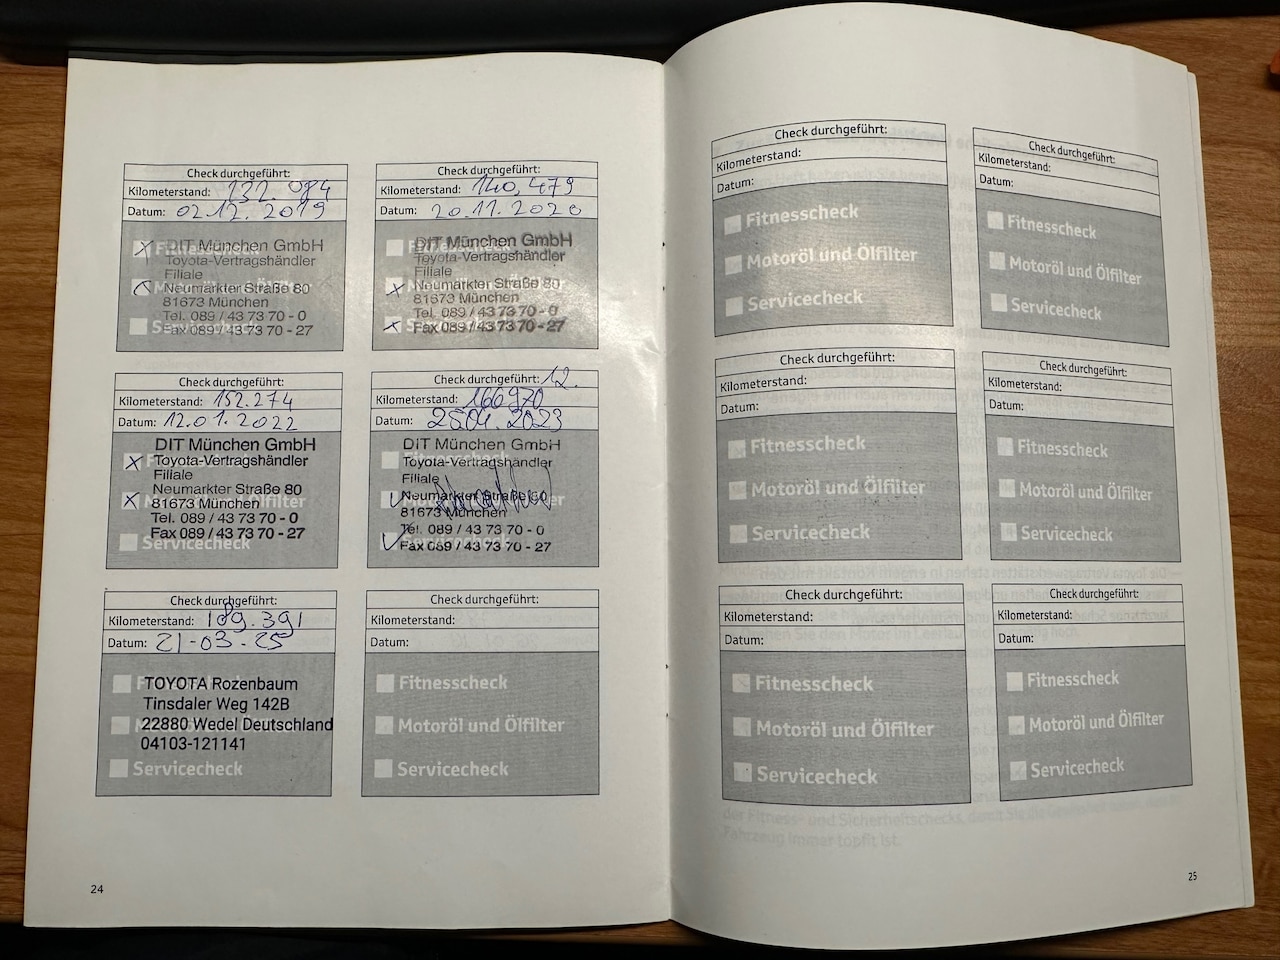 Check durchgeführt:
Kilometerstand: 132.984
Datum: 02.12.2019
Fitnesscheck
DIT München GmbH
Toyota-Vertragshändler
Filiale
Neumarkter Straße 80
81673 München
Tel. 089 / 43 73 70 - 0
Fax 089 / 43 73 70 - 27
Check durchgeführt:
Kilometerstand: 140,479
Datum: 20.11.2020
DIT München GmbH
Toyota-Vertragshändler
Filiale
Neumarkter Straße 80
81673 München
Tel. 089 / 43 73 70 - 0
Fax 089 / 43 73 70 - 27
Check durchgeführt:
Kilometerstand: 152.274
Datum: 12.01.2022
DIT München GmbH
Toyota-Vertragshändler
Filiale
Neumarkter Straße 80
81673 München
Tel. 089 / 43 73 70 - 0
Fax 089 / 43 73 70 - 27
Servicecheck
Check durchgeführt: 12.
Kilometerstand: 166970
Datum: 2023
DIT München GmbH
Toyota-Vertragshändler
Filiale
Neumarkter Straße 80
81673 München
Tel. 089 / 43 73 70 - 0
Fax 089 / 43 73 70 - 27
Check durchgeführt:
Kilometerstand: 189.391
Datum: 21-03-25
TOYOTA Rozenbaum
Tinsdaler Weg 142B
22880 Wedel Deutschland
04103-121141
Servicecheck
Check durchgeführt:
Kilometerstand:
Datum:
Fitnesscheck
Motoröl und Ölfilter
Servicecheck
24
Check durchgeführt:
Kilometerstand:
Datum:
Fitnesscheck
Motoröl und Ölfilter
Servicecheck
Check durchgeführt:
Kilometerstand:
Datum:
Fitnesscheck
Motoröl und Ölfilter
Servicecheck
Check durchgeführt:
Kilometerstand:
Datum:
Fitnesscheck
Motoröl und Ölfilter
Servicecheck
Check durchgeführt:
Kilometerstand:
Datum:
Fitnesscheck
Motoröl und Ölfilter
Servicecheck
Check durchgeführt:
Kilometerstand:
Datum:
Fitnesscheck
Motoröl und Ölfilter
Servicecheck
Check durchgeführt:
Kilometerstand:
Datum:
Fitnesscheck
Motoröl und Ölfilter
Servicecheck
25